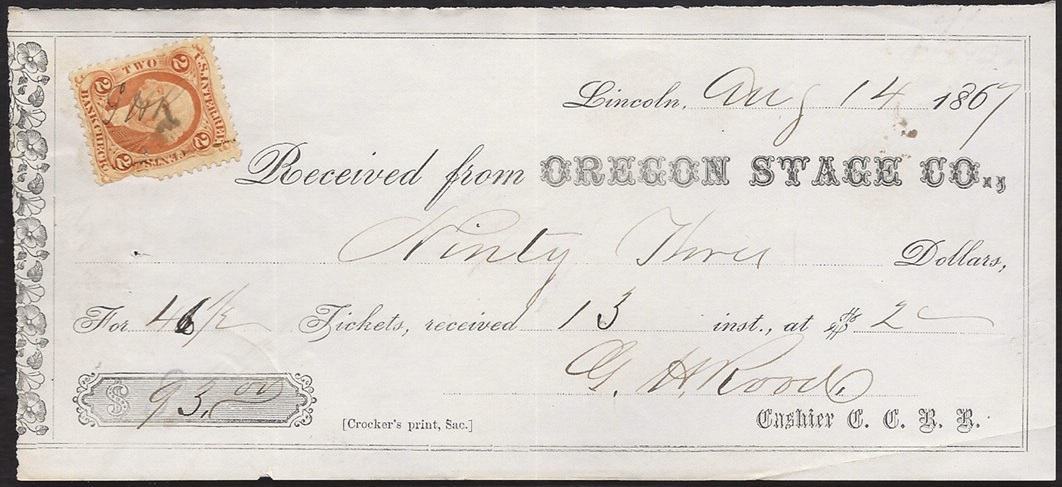 Lincoln, Aug 14 1867
Received from OREGON STAGE CO.,
Ninty Three Dollars,
For 46 1/2 Tickets, received 13 inst., at $ 2
G. H. Rood,
$ 93.00
[Crocker's print, Sac.]
Cashier C. C. R. R.
TWO
2 2
U.S. INTER. REV.
BANK CHECK
CENTS
2 2